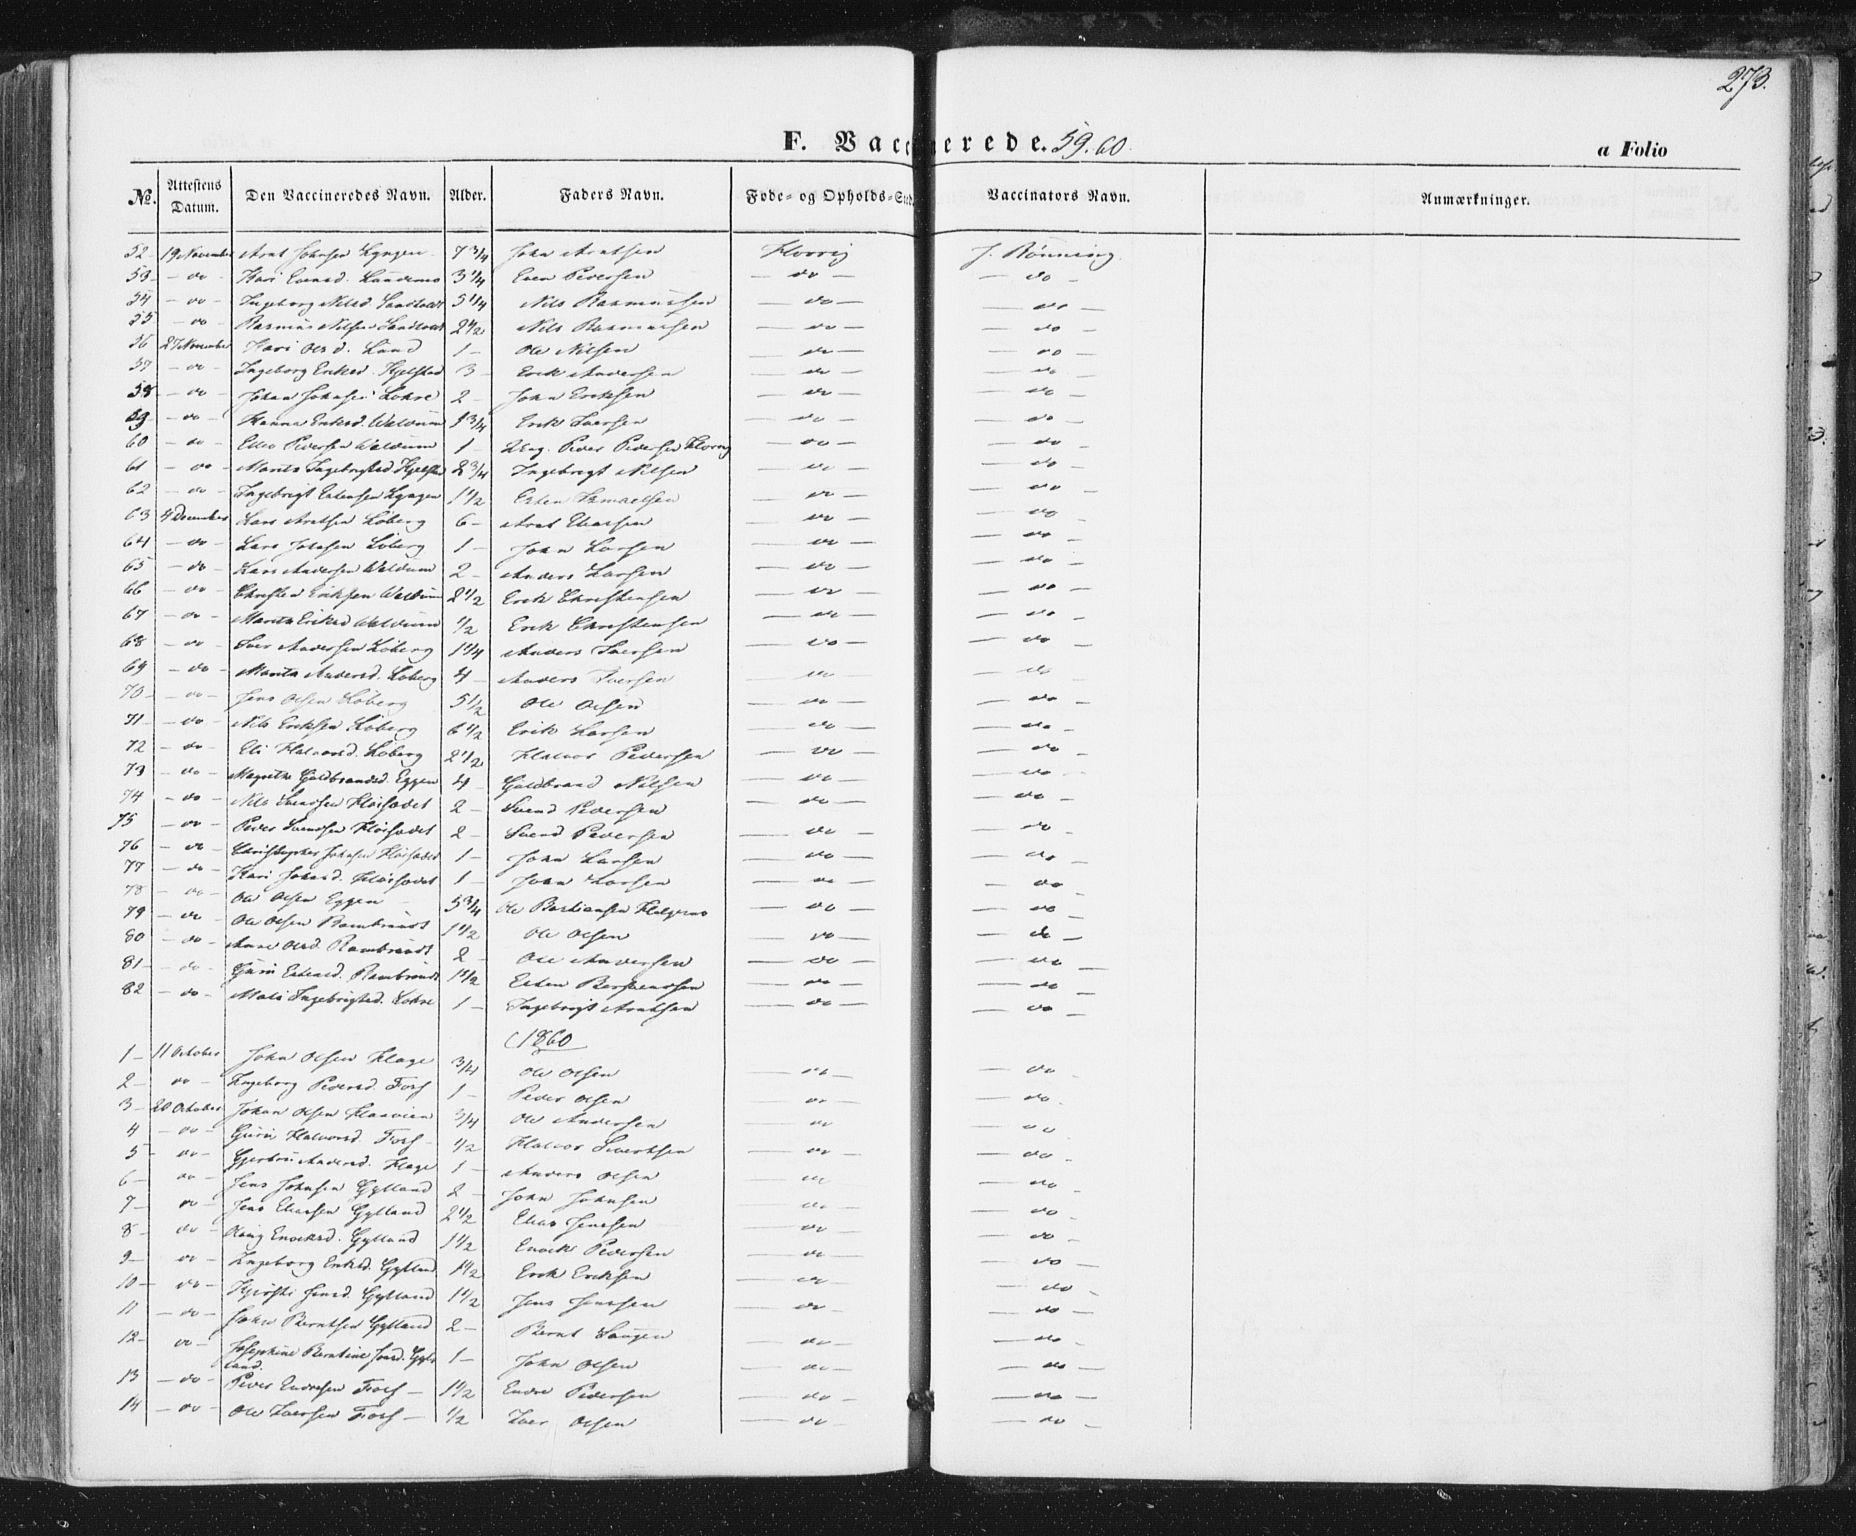 273.
F. Vaccinerede. 59.60
a Folio
No. Attestens Datum. Den Vaccineredes Navn. Alder. Faders Navn. Føde- og Opholds-Sted Vaccinators Navn. Anmærkninger.
52 19 November Arnt Johnsen Lyngen 7 3/4 John Arntsen Flovrig J. Rönning
53 - do - Kari Evensd. Landemo 3 1/4 Even Pedersen - do - - do -
54 - do - Ingeborg Nilsd. Sandvoldt 5 1/4 Nils Rasmussen - do - - do -
55 - do - Rasmus Nilsen Sandvoldt 2 1/2 Nils Rasmussen - do - - do -
56 27 November Kari Olsd. Lund 1 - Ole Nilsen - do - - do -
57 - do - Ingeborg Eriksd. Kjelstad 3 - Erik Andersen - do - - do -
58 - do - Johan Johnsen Lohre 2 - John Eriksen - do - - do -
59 - do - Hanna Eriksd. Waldum 1 3/4 Erik Iversen - do - - do -
60 - do - Pedersen Waldum 1 Ung. Peder Pedersen Flovrig - do - - do -
61 - do - Marit Ingebrigtsd. Kjelstad 2 3/4 Ingebrigt Nilsen - do - - do -
62 - do - Ingebrigt Estensen Lyngen 1 1/2 Esten Ismaelsen - do - - do -
63 4 December Lars Arntsen Löberg 6 - Arnt Eliassen - do - - do -
64 - do - Lars Johnsen Löberg 1 - John Larsen - do - - do -
65 - do - Lars Andersen Waldum 2 - Anders Larsen - do - - do -
66 - do - Christen Eriksen Waldum 2 1/2 Erik Christensen - do - - do -
67 - do - Marit Eriksd Waldum 1/2 Erik Christensen - do - - do -
68 - do - Iver Andersen Löberg 1 1/4 Anders Iversen - do - - do -
69 - do - Marita Andersd. Löberg 4 - Anders Iversen - do - - do -
70 - do - Jens Olsen Löberg 5 1/2 Ole Olsen - do - - do -
71 - do - Nils Eriksen Löberg 6 1/2 Erik Larsen - do - - do -
72 - do - Eli Halvorsd. Löberg 2 1/2 Halvor Pedersen - do - - do -
73 - do - Magrethe Guldbrandsd. Eggen 4 - Guldbrand Nilsen - do - - do -
74 - do - Nils Svendsen Flöisædet 2 - Svend Pedersen - do - - do -
75 - do - Peder Svendsen Flöisædet 2 - Svend Pedersen - do - - do -
76 - do - Christopher Johnsen Flöisædet 1 - John Larsen - do - - do -
77 - do - Kari Johnsd. Flöisædet 1 - John Larsen - do - - do -
78 - do - Ole Olsen Eggen 5 3/4 Ole Bastiansen - do - - do -
79 - do - Ole Olsen Rambraadt 1 1/2 Ole Olsen - do - - do -
80 - do - Anne Olsd. Rambraadt 2 - Ole Andersen - do - - do -
81 - do - Guru Estensd. Rambraadt 1 1/2 Esten Bersvendsen - do - - do -
82 - do - Mali Ingebrigtsd. Lohre 1 - Ingebrigt Arntsen - do - - do -
1860
1 - 11 October John Olsen Hage 3/4 Ole Olsen - do - - do -
2 - do - Ingeborg Pedersd. Fors 1 - Peder Olsen - do - - do -
3 - 20 October Johan Olsen 3/4 Ole Andersen - do - - do -
4 - do - Guru Halvorsd. Fors 1/2 Halvor Sivertsen - do - - do -
5 - do - Gjertru Andersd. Hage 1 - Anders Olsen - do - - do -
6 - do - Jens Johnsen Gylland 2 - John Johnsen - do - - do -
7 - do - Jens Eliassen Gylland 2 1/2 Elias Jensen - do - - do -
8 - do - Enoksd. Gylland 1 1/2 Enok Pedersen - do - - do -
9 - do - Ingeborg Eriksd. Gylland 1 1/2 Erik Eriksen - do - - do -
10 - do - Jensd. Gylland 1 1/2 Jens Jensen - do - - do -
11 - do - Berntsen Gylland 2 - Bernt - do - - do -
12 - do - Josephine Berntine Johnsd. Gyl-
land 1 - John Olsen - do - - do -
13 - do - Peder Endresen Fors - 1 1/2 Endre Pedersen - do - - do -
14 - do - Ole Iversen Fors - 1/2 Iver Olsen - do - - do -